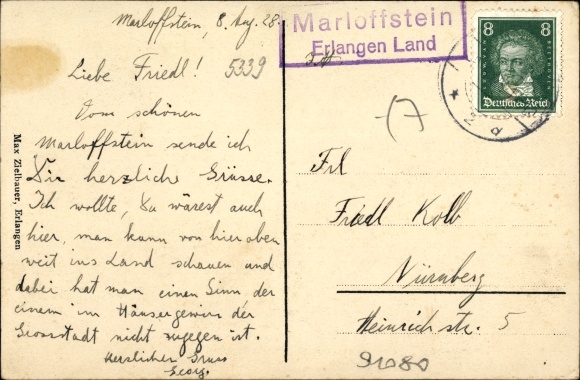 Marloffstein, 8. Aug. 28.
Liebe Friedl!
5339
Vom schönen
Marloffstein sende ich
Dir herzliche Grüsse.
Ich wollte, Du wärest auch
hier, man kann von hier oben
weit ins Land schauen und
dabei hat man einen Sinn, der
einem im Häusergewirr der
Grossstadt nicht zugegen ist.
Herzlichen Gruss
Georg.
Max Zielbauer, Erlangen
Marloffstein
Erlangen Land
8 8
LUDWIG VAN BEETHOVEN
Deutsches Reich
Frl
Friedl Kolb
Nürnberg
Heinrichstr. 5
91080